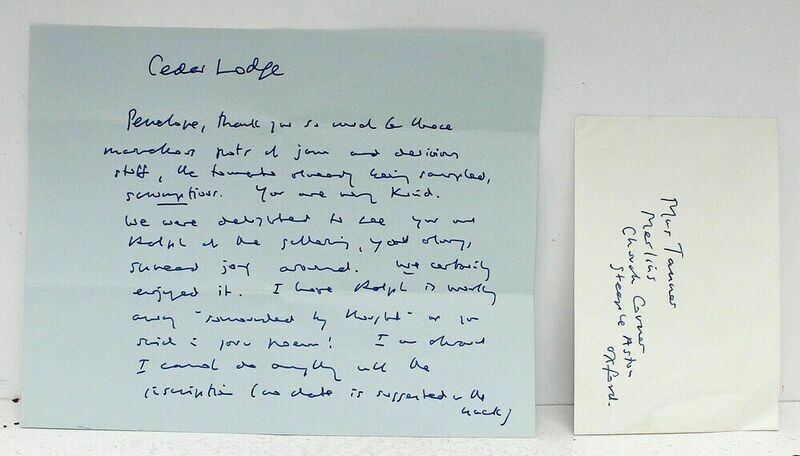 Cedar Lodge
Penelope, thank you so much for those
marvellous pots of jam and delicious
stuff, the tomato already being sampled,
scrumptious. You are very kind.
We were delighted to see you and
Ralph at the gathering, you
spread joy around. We certainly
enjoyed it. I hope Ralph is working
away "surrounded by thought" as you
said in your poem! I am afraid
I cannot do anything with the
inscription (no date is suggested in the
book)
Mrs Tanner
Merlins
Church Corner
Steeple Aston
Oxford.